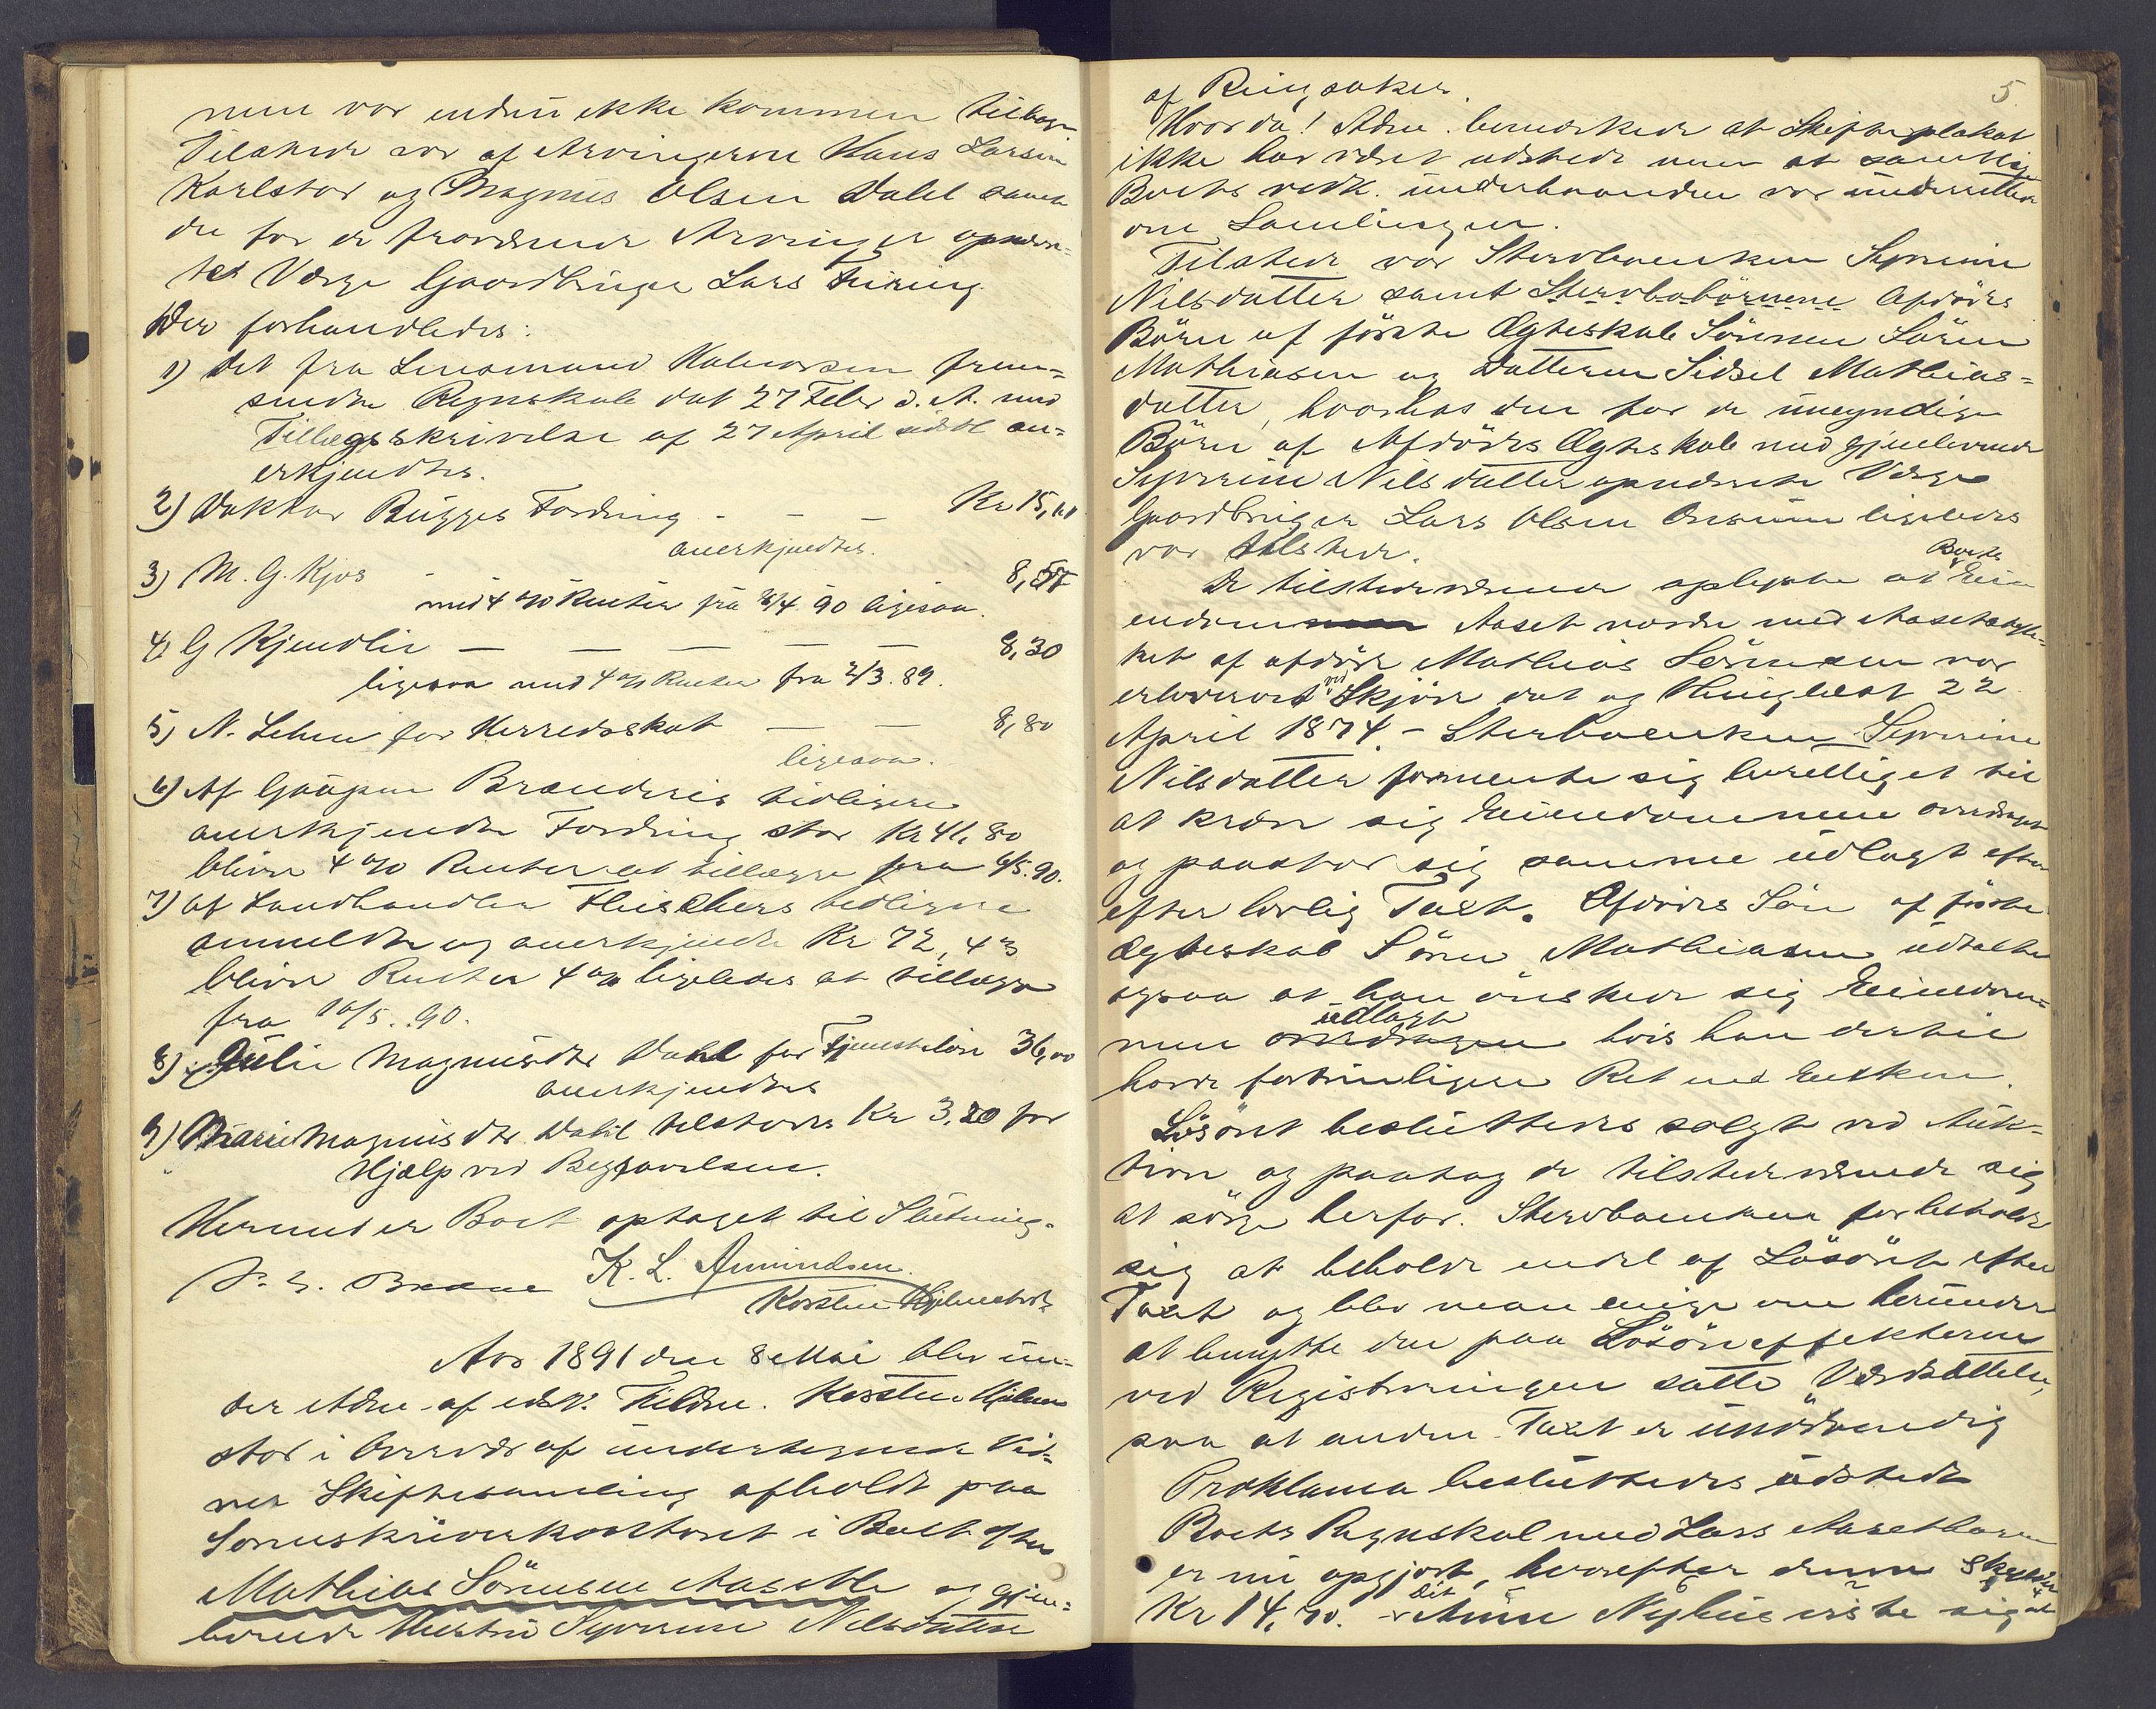 men var endnu ikke kommen tilbage.
Tilstede var af Arvingerne Hans Larsen
Karlstad og Magnus Olsen Dahl samt
den for de fraværende Arvinger opnævn-
te Værge Gaardbruger Lars Furing.
Der forhandledes:
1) Det fra Lensmand Halvorsen frem-
sendte Regnskab dat 27 Febr d. A. med
Tillægsskrivelse af 27 April sidstl an-
erkjendtes.
2) Doktor Bugges Fordring - - - Kr 15,00
anerkjendtes.
3) M. G. Kjos - 8,
med 4 % Renter fra 90 ligesaa.
4) G Kjendlie - - - - - 8,30
ligesaa med 4 % Renter fra 2/3. 89.
5) N. Lehne for Herredsskat - - 8,80
ligesaa.
6) Af Gaupen Brænderis tidligere
anerkjendte Fordring stor Kr 41,80
bliver 4 % Renter at tillægge fra 6/5. 90.
7) af Landhandler Fleischers tidligere
anmeldte og anerkjendte Kr 72,43
bliver Renter 4 % ligeledes at tillægge
fra 10/5. 90.
8) Julie Magnusdtr Dahl for Tjenesteløn 36,00
anerkjendtes
9) Marie Magnusdtr. Dahl tilstodes Kr 3,20 for
Hjælp ved Begravelsen.
Hermed er Boet optaget til Slutning.
K. L. Amundsen.
Karsten Hjelmstad
Aar 1891 den 8 Mai blev un-
der Adm. af edsv. Fuldm. Karsten Hjelm-
stad i Overvær af undertegnede Vid-
ner Skiftesamling afholdt paa
Sorenskriverkontoret i Boet efter
Mathias Sørensen Aasetbb og gjen-
levende Hustru Syverine Nilsdatter
5
af Ringsaker.
Hvorda! Adm. bemærkede at Skifteplakat
ikke har været udstedt men at samtlige
Boets vedk. underhaanden var underrettede
om Samlingen.
Tilstede var Stervboenken Syverine
Nilsdatter samt Stervbobørnene Afdødes
Børn af første Ægteskab Sønnen Søren
Mathiasen og Datteren Sidsel Mathias-
datter, hvorhos den for de umyndige
Børn af Afdødes Ægteskab med gjenlevende
Syverine Nilsdatter opnævnte Værge
Gaardbruger Lars Olsen ligeledes
var tilstede.
De tilstedeværende oplyste at Boets Ei-
endom Aaset nordre med
af afdøde Mathias Sørensen var
erhvervet ved Skjøde dat og thinglæst 22
April 1874. - Sterboenken Syverine
Nilsdatter formente sig berettiget til
at kræve sig Eiendommene overdraget
og paastod sig samme udlagt efter
efter lovlig Taxt. Afdødes Søn af første
Ægteskab Søren Mathiasen udtalte
ogsaa at han ønskede sig Eiendom-
men udlagt hvis han dertil
havde fortrinligere Ret end Enken.
Løsøret besluttedes solgt ved Auk-
tion og paatog de tilstedeværende sig
at sørge herfor. Stervboenken forbeholdt
sig at beholde endel af Løsøret efter
Taxt og blev man enige om herunder
at benytte den paa Løsøreeffekterne
ved Registreringen satte Værdsættelse,
saa at anden Taxt er unødvendig
Proklama besluttedes udstedt
Boets Regnskab med Lars
er nu opgjort, hvorefter denne skylder
Kr 14,70. - Det Nyhus viste sig at